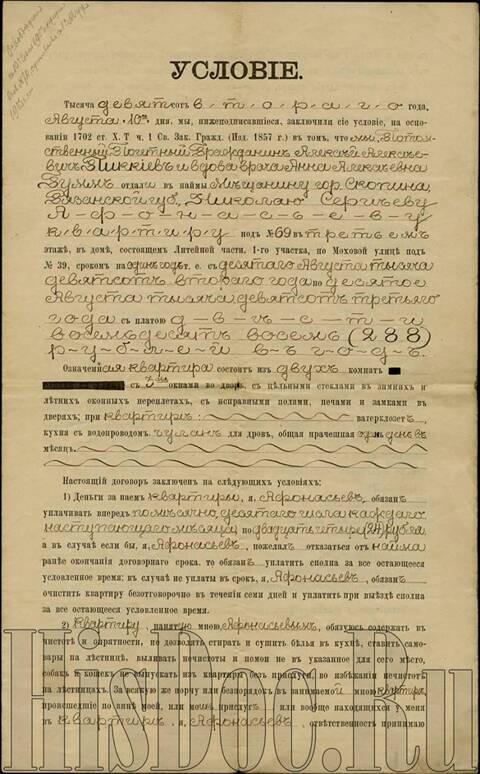 УСЛОВІЕ.
Тысяча девятсотъ втораго года,
Августа 10го дня, мы, нижеподписавшіеся, заключили сіе условіе, на осно-
ваніи 1702 ст. X. Т. ч. 1 Св. Зак. Гражд. (Изд. 1857 г.) въ томъ, что мы, Потом-
ственный Почетный Гражданинъ Алексѣй Алексѣе-
вичъ Пикіевъ и вдова врача Анна Алексѣевна
отдали въ наймы Мѣщанину гор. Скопина,
Рязанской губ. Николаю Сергѣеву
Афонасьеву
квартиру подъ № 69 въ третьемъ
этажѣ, въ домѣ, состоящемъ Литейной части, 1-го участка, по Моховой улицѣ подъ
№ 39, срокомъ на одинъ годъ т. е. съ десятаго Августа тысяча
девятсотъ втораго года по десятое
Августа тысяча девятсотъ третьяго
года съ платою двѣсти
восемьдесятъ восемь (288)
рублей въ годъ.
Означенная квартира состоитъ изъ двухъ комнатъ
съ окнами во дворъ съ цѣльными стеклами въ зимнихъ и
лѣтнихъ оконныхъ переплетахъ, съ исправными полами, печами и замками въ
дверяхъ; при квартирѣ: ватерклозетъ,
кухня съ водопроводомъ чуланъ для дровъ, общая прачешная одинъ день въ
мѣсяцъ.
Настоящій договоръ заключенъ на слѣдующихъ условіяхъ:
1) Деньги за наемъ квартиры, я, Афонасьевъ, обязанъ
уплачивать впередъ помѣсячно, десятаго числа каждаго
наступающаго мѣсяца по двадцать четыре (24) рубля
а въ случаѣ если бы, я, Афонасьевъ, пожелалъ отказаться отъ найма
ранѣе окончанія договорнаго срока, то обязанъ уплатить сполна за все остающееся
условленное время; въ случаѣ не уплаты въ срокъ, я, Афонасьевъ, обязанъ
очистить квартиру безотговорочно въ теченіи семи дней и уплатить при выѣздѣ сполна
за все остающееся условленное время.
2) Квартиру, нанятую мною, Афонасьевымъ, обязуюсь содержать въ
чистотѣ и опрятности, не дозволять стирать и сушить бѣлья въ кухнѣ, ставить само-
вары на лѣстницѣ, выливать нечистоты и помои не въ указанное для сего мѣсто,
собакъ и кошекъ не выпускать изъ квартиры безъ присмотра, во избѣжаніи нечистотъ
на лѣстницахъ. За всякую же порчу или безпорядокъ въ занимаемой мною квартирѣ,
происшедшіе по винѣ моей, или моей прислуги или вообще находящихся у меня
въ квартирѣ, я, Афонасьевъ, отвѣтственность принимаю
HisDoc.Ru